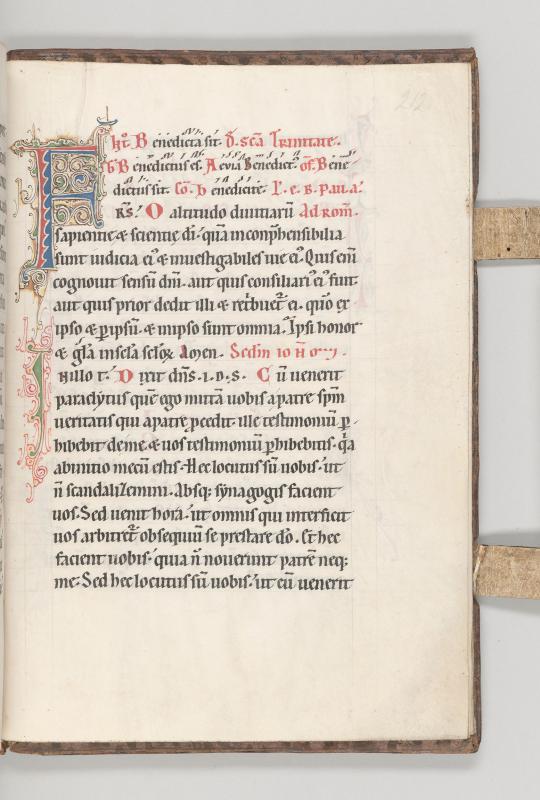 212
Int̄ Benedicta sit. D̄. Sc̄a Trinitate.
G̃ Benedictus es. Aevia Benedict. of. Bene
dictus sit. Co. benedicite. L. e. B. Paula.
FRS. O altitudo diuitiarū Ad rom̄.
sapientie & scientie di. quā inconp̄hensibilia
sunt iudicia ei & inuestigabiles uie ei. Quis eni
cognouit sensū dni. aut quis consiliari ei fuit.
aut quis prior dedit illi & retribuet ei. quō ex
ipso & p ipsū. & in ipso sunt omnia. Ipsi honor
& glā in sc̄la sc̄lor Amen. Scdm̄ ioh̄
In illo t. Dixit dn̄s. i. d. s. Cū uenerit
paraclytus quē ego mittā uobis a patre sp̄m
ueritatis qui a patre p̄cedit ille testimoniū p̄
hibebit de me. & uos testimoniū p̄hibebitis. q̄a
ab initio mecū estis. Hec locutus sū uobis. ut
n̄ scandalizemini. Absq; synagogis facient
uos. Sed uenit hora. ut omnis qui interficit
uos arbitret̄ obsequiū se prestare dō. Et hec
facient uobis. quia n̄ nouerunt patrē neq;
me. Sed hec locutus sū uobis. ut cū uenerit